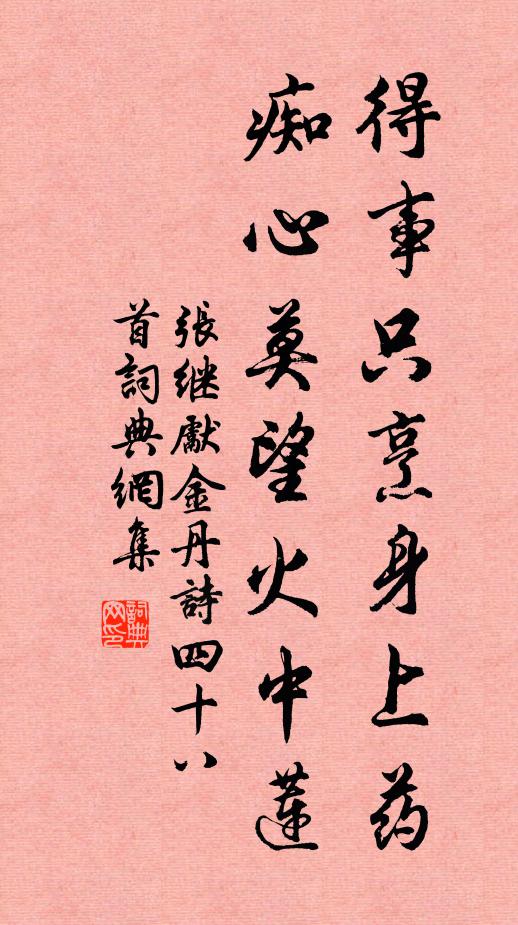 得事只烹身上药
痴心莫望火中蓮
張继獻金丹詩四十八
首詞典網集
詞典網印